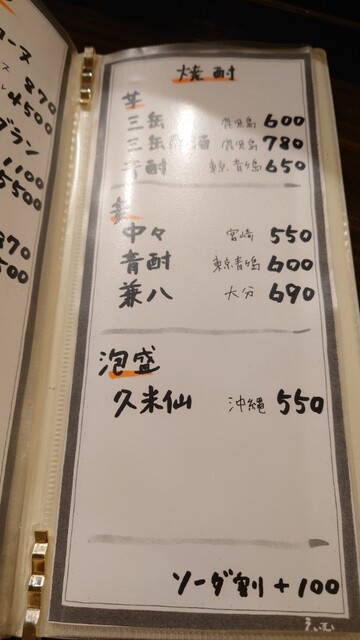 ース
870
4500
グラン
1100
5500
870
焼酎
芋
三岳 鹿児島 600
三岳 鹿児島 780
青酎 東京青ヶ島 650
麦
中々 宮崎 550
青酎 東京青ヶ島 600
兼八 大分 690
泡盛
久米仙 沖縄 550
ソーダ割 +100